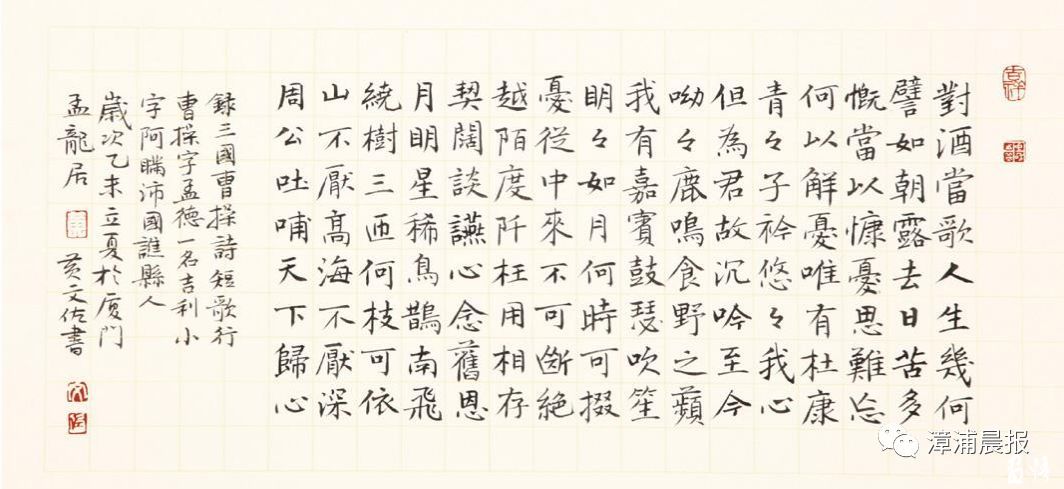 對酒當歌人生幾何
譬如朝露去日苦多
慨當以慷憂思難忘
何以解憂唯有杜康
青々子衿悠々我心
但為君故沉吟至今
呦々鹿鳴食野之蘋
我有嘉賓鼓瑟吹笙
明々如月何時可掇
憂從中來不可斷絕
越陌度阡枉用相存
契闊談讌心念舊恩
月明星稀烏鵲南飛
繞樹三匝何枝可依
山不厭高海不厭深
周公吐哺天下歸心
錄三國曹操詩短歌行
曹操字孟德一名吉利小
字阿瞞沛國譙縣人
歲次乙未立夏於廈門
孟龍居
黃文佐書
吉祥
漳浦晨报